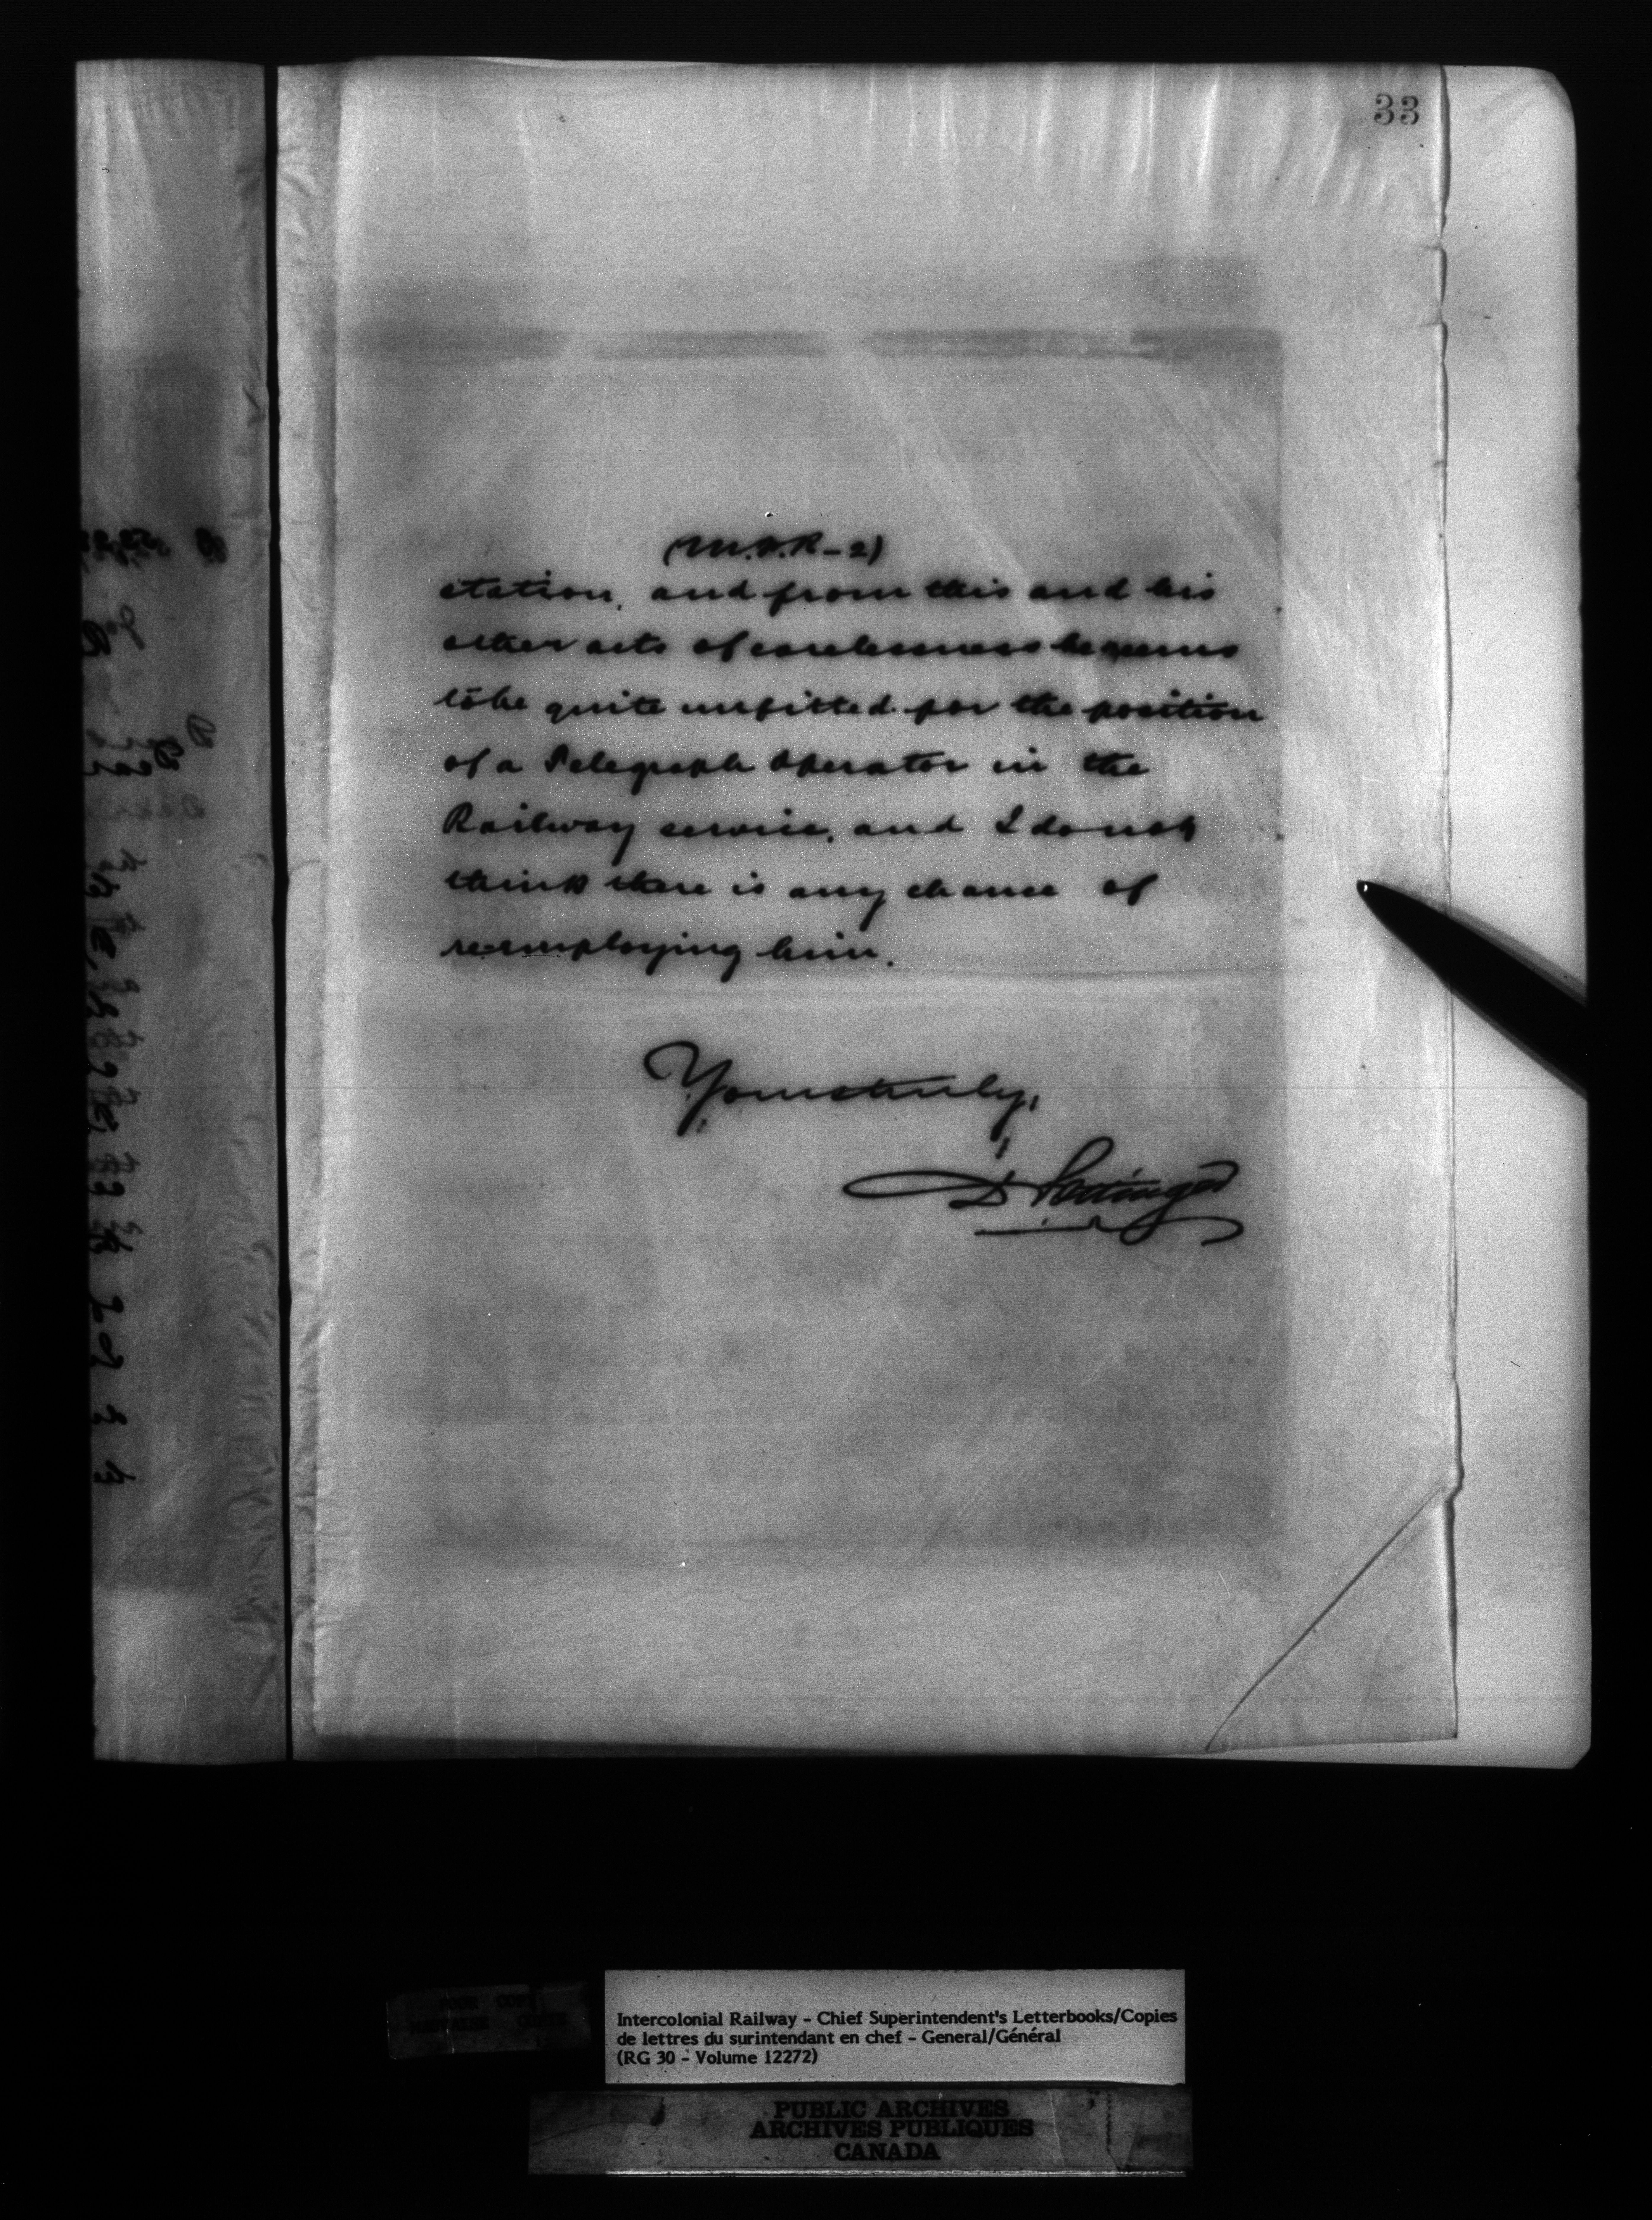 33
(M.A.R-2)
station, and from this and his
other acts of carelessness he seems
to be quite unfitted for the position
of a Telegraph Operator in the
Railway service, and I do not
think there is any chance of
re-employing him.
Yours truly,
D Pottinger
Intercolonial Railway - Chief Superintendent's Letterbooks/Copies
de lettres du surintendant en chef - General/Général
(RG 30 - Volume 12272)
PUBLIC ARCHIVES
ARCHIVES PUBLIQUES
CANADA